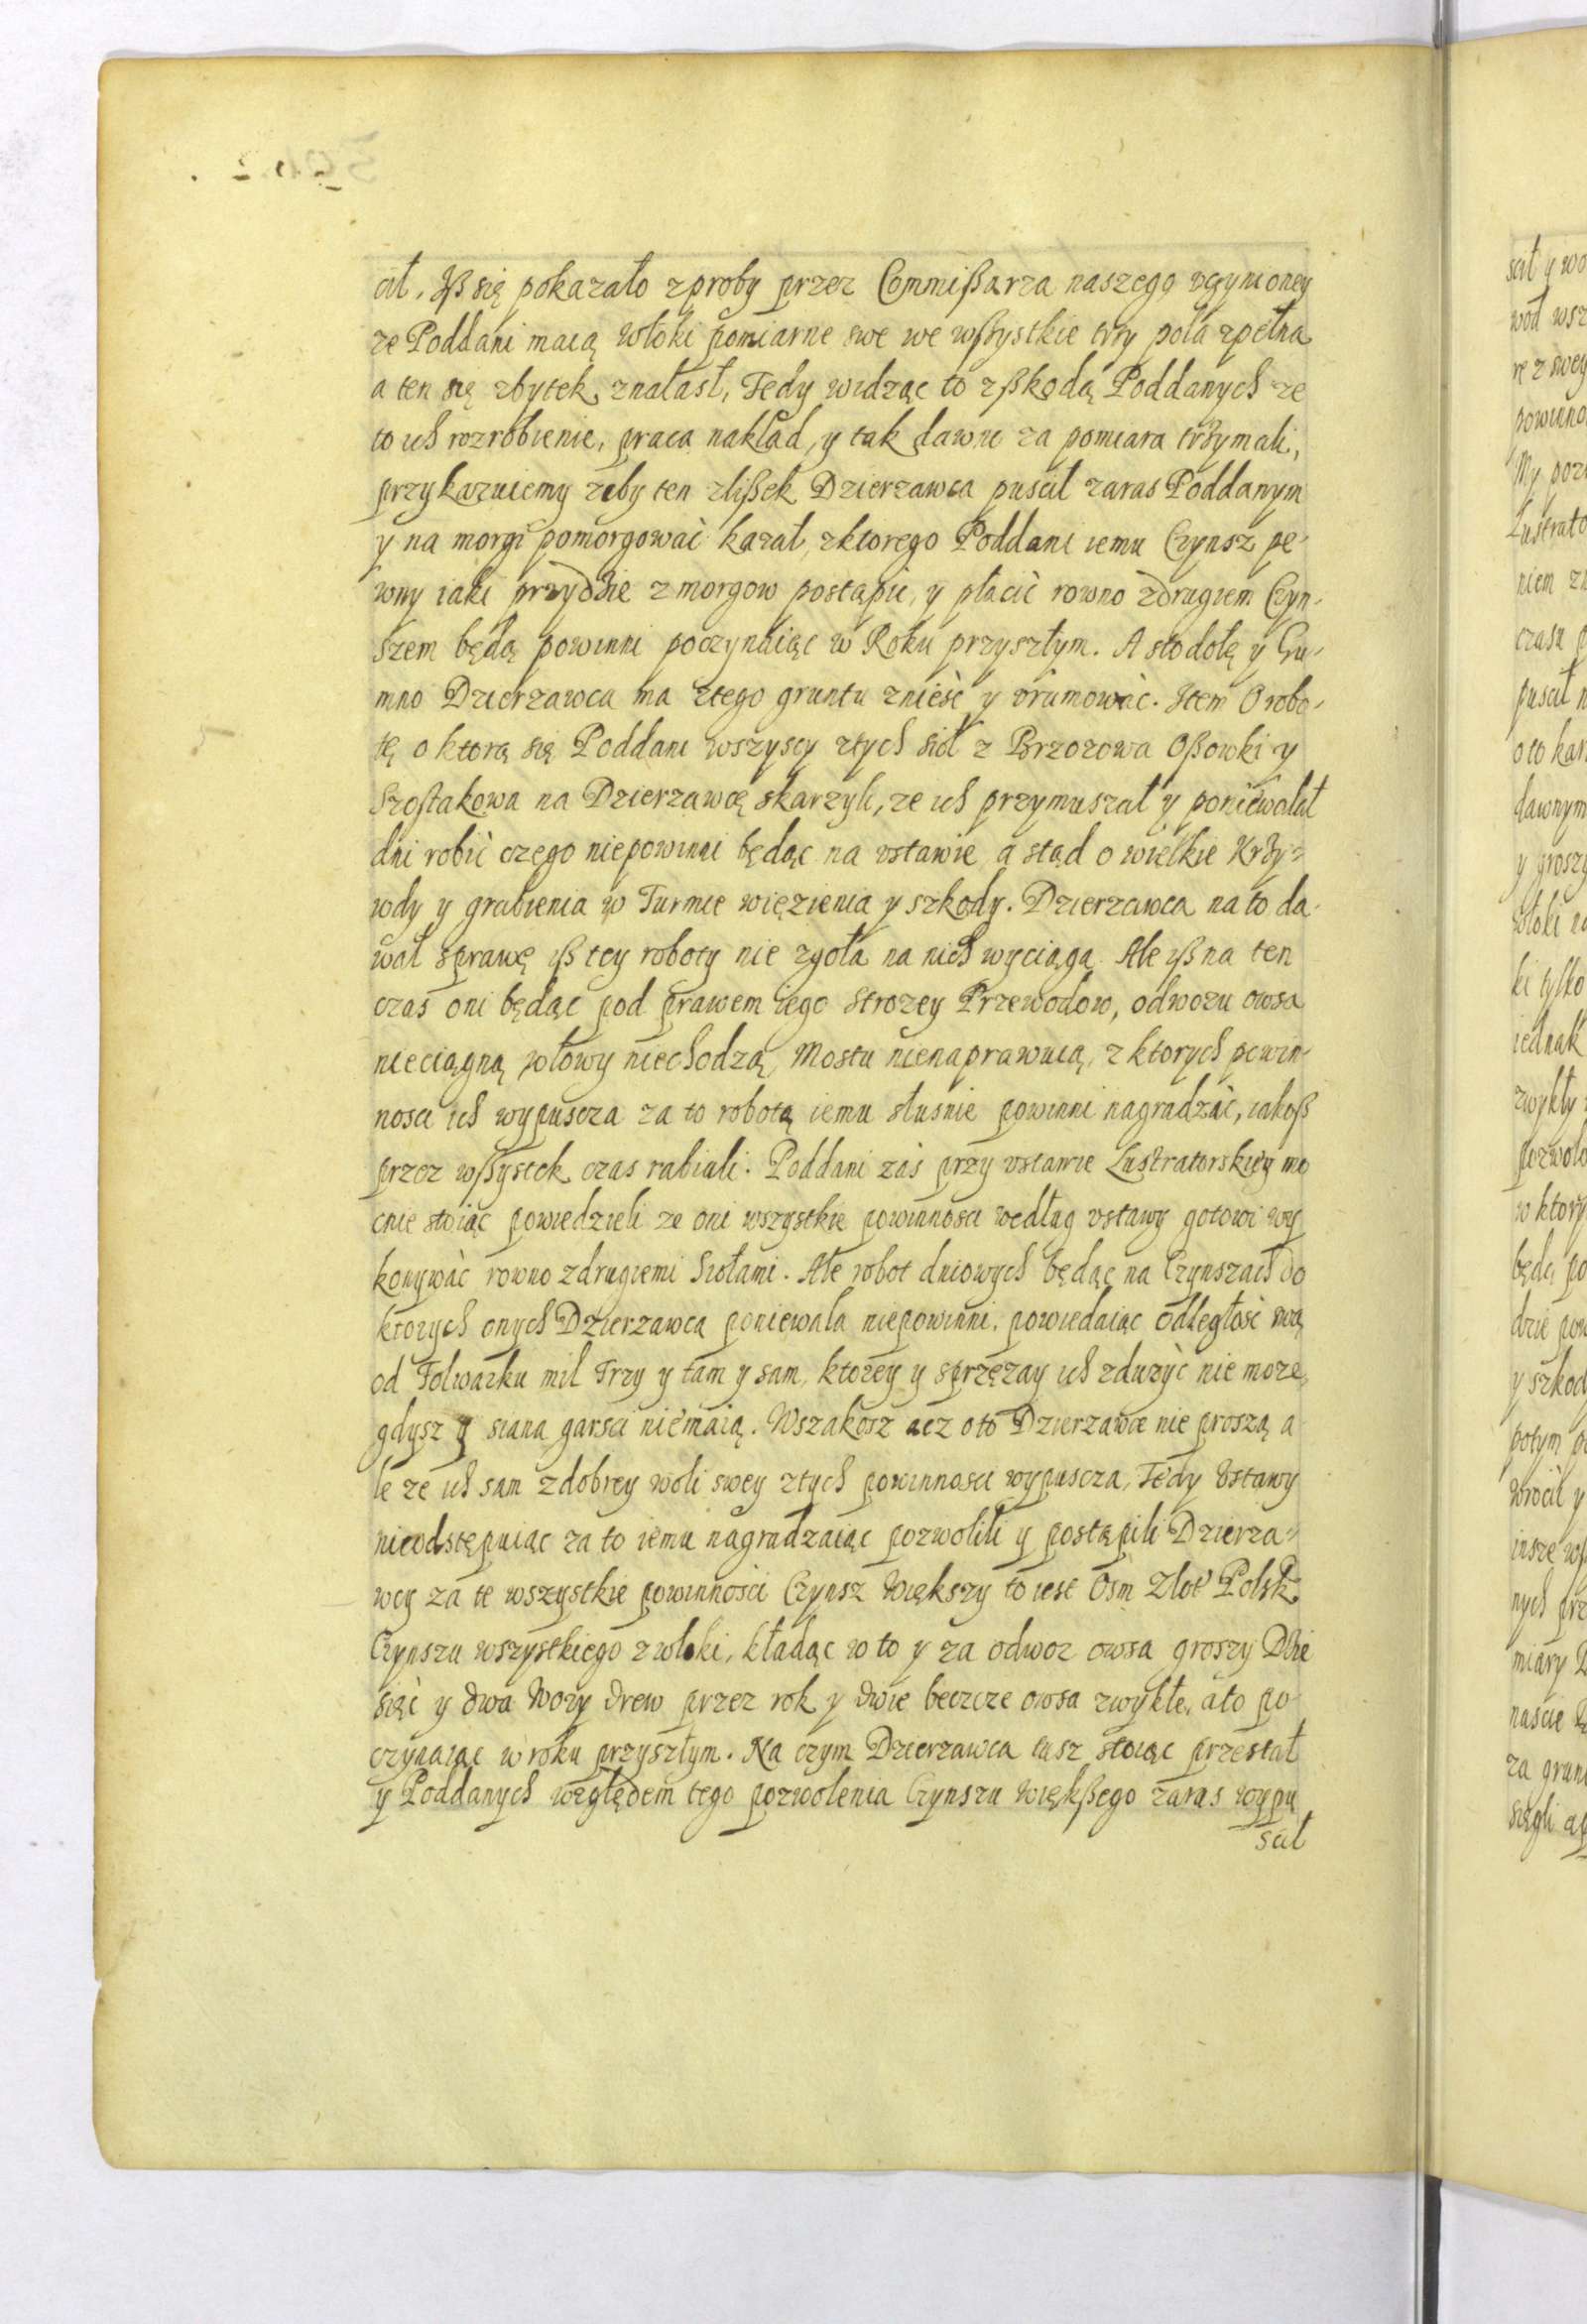 cił. Iß się pokazało z proby przez Commißarza naszego vczynioney
ze Poddani maią włoki pomiarne swe we wßystkie trzy pola zpełna
a ten się zbytek znalasł, Tedy widząc to zßkodą Poddanych ze
to ich rozrobienie, praca nakład, y tak dawne za pomiara trzymali,
przykazuiemy zeby ten zlißek Dzierzawca puscił zaras Poddanym
y na morgi pomorgowac kazał, zktorego Poddani iemu Czynsz pe-
wny iaki przydzie z morgow postąpic, y płacić rowno zdrugiem Czyn-
szem będą powinni poczynaiąc w Roku przyszłym. A stodołę y Gu-
mno Dzierzawca ma ztego gruntu znieść y vrumować. Item O robo-
tę o ktorą się Poddani wszyscy ztych sioł z Brzozowa Oßowki y
Szostakowa na Dzierzawcę skarzyli, ze ich przymuszał y poniewalał
dni robić czego niepowinni będąc na vstawie a stąd o wielkie Krzy-
wdy y grabienia w Turmie więzienia y szkody. Dzierzawca na to da-
wał sprawę iß tey roboty nie zgoła na nich wyciąga. Ale yß na ten
czas oni będąc pod prawem iego Strozey Przewodow, odwozu owsa
nieciągną, włowy niechodzą, Mostu nienaprawuią, z ktorych powin-
nosci ich wypuscza za to robotą iemu słusnie powinni nagradzać, iakoß
przez wßystek czas rabiali. Poddani zaś przy vstawie Lustratorskiey mo
cnie stoiąc powiedzieli ze oni wszystkie powinnosci według vstawy gotowi wy
konywać rowno zdrugiemi Siołami. Ale robot dniowych będąc na Czynszach do
ktorych onych Dzierzawca poniewala niepowinni. powiedaiąc odległość swą
od Folwarku mil Trzy y tam y sam, ktorey y sprzęzay ich zdużyć nie moze,
gdysz y siana garsci niemaią. Wszakosz acz oto Dzierzawce nie proszą a
le ze ich sam zdobrey woli swey ztych powinnosci wypuscza, Tedy Vstawy
nieodstępuiąc za to iemu nagradzaiąc pozwolili y postąpili Dzierza-
wcy za te wszystkie powinności Czynsz Większy to iest Ośm Złot Polsk
Czynszu wszystkiego zwłoki, kładąc w to y za odwoz owsa groszy Dzie
sięć y dwa Wozy drew przez rok y dwie beczce owsa zwykłe, ato po-
czynaiąc w roku przyszłym. Na czym Dzierzawca tusz stoiąc przestał
y Poddanych względem tego pozwolenia Czynszu większego zaras wypu
scił